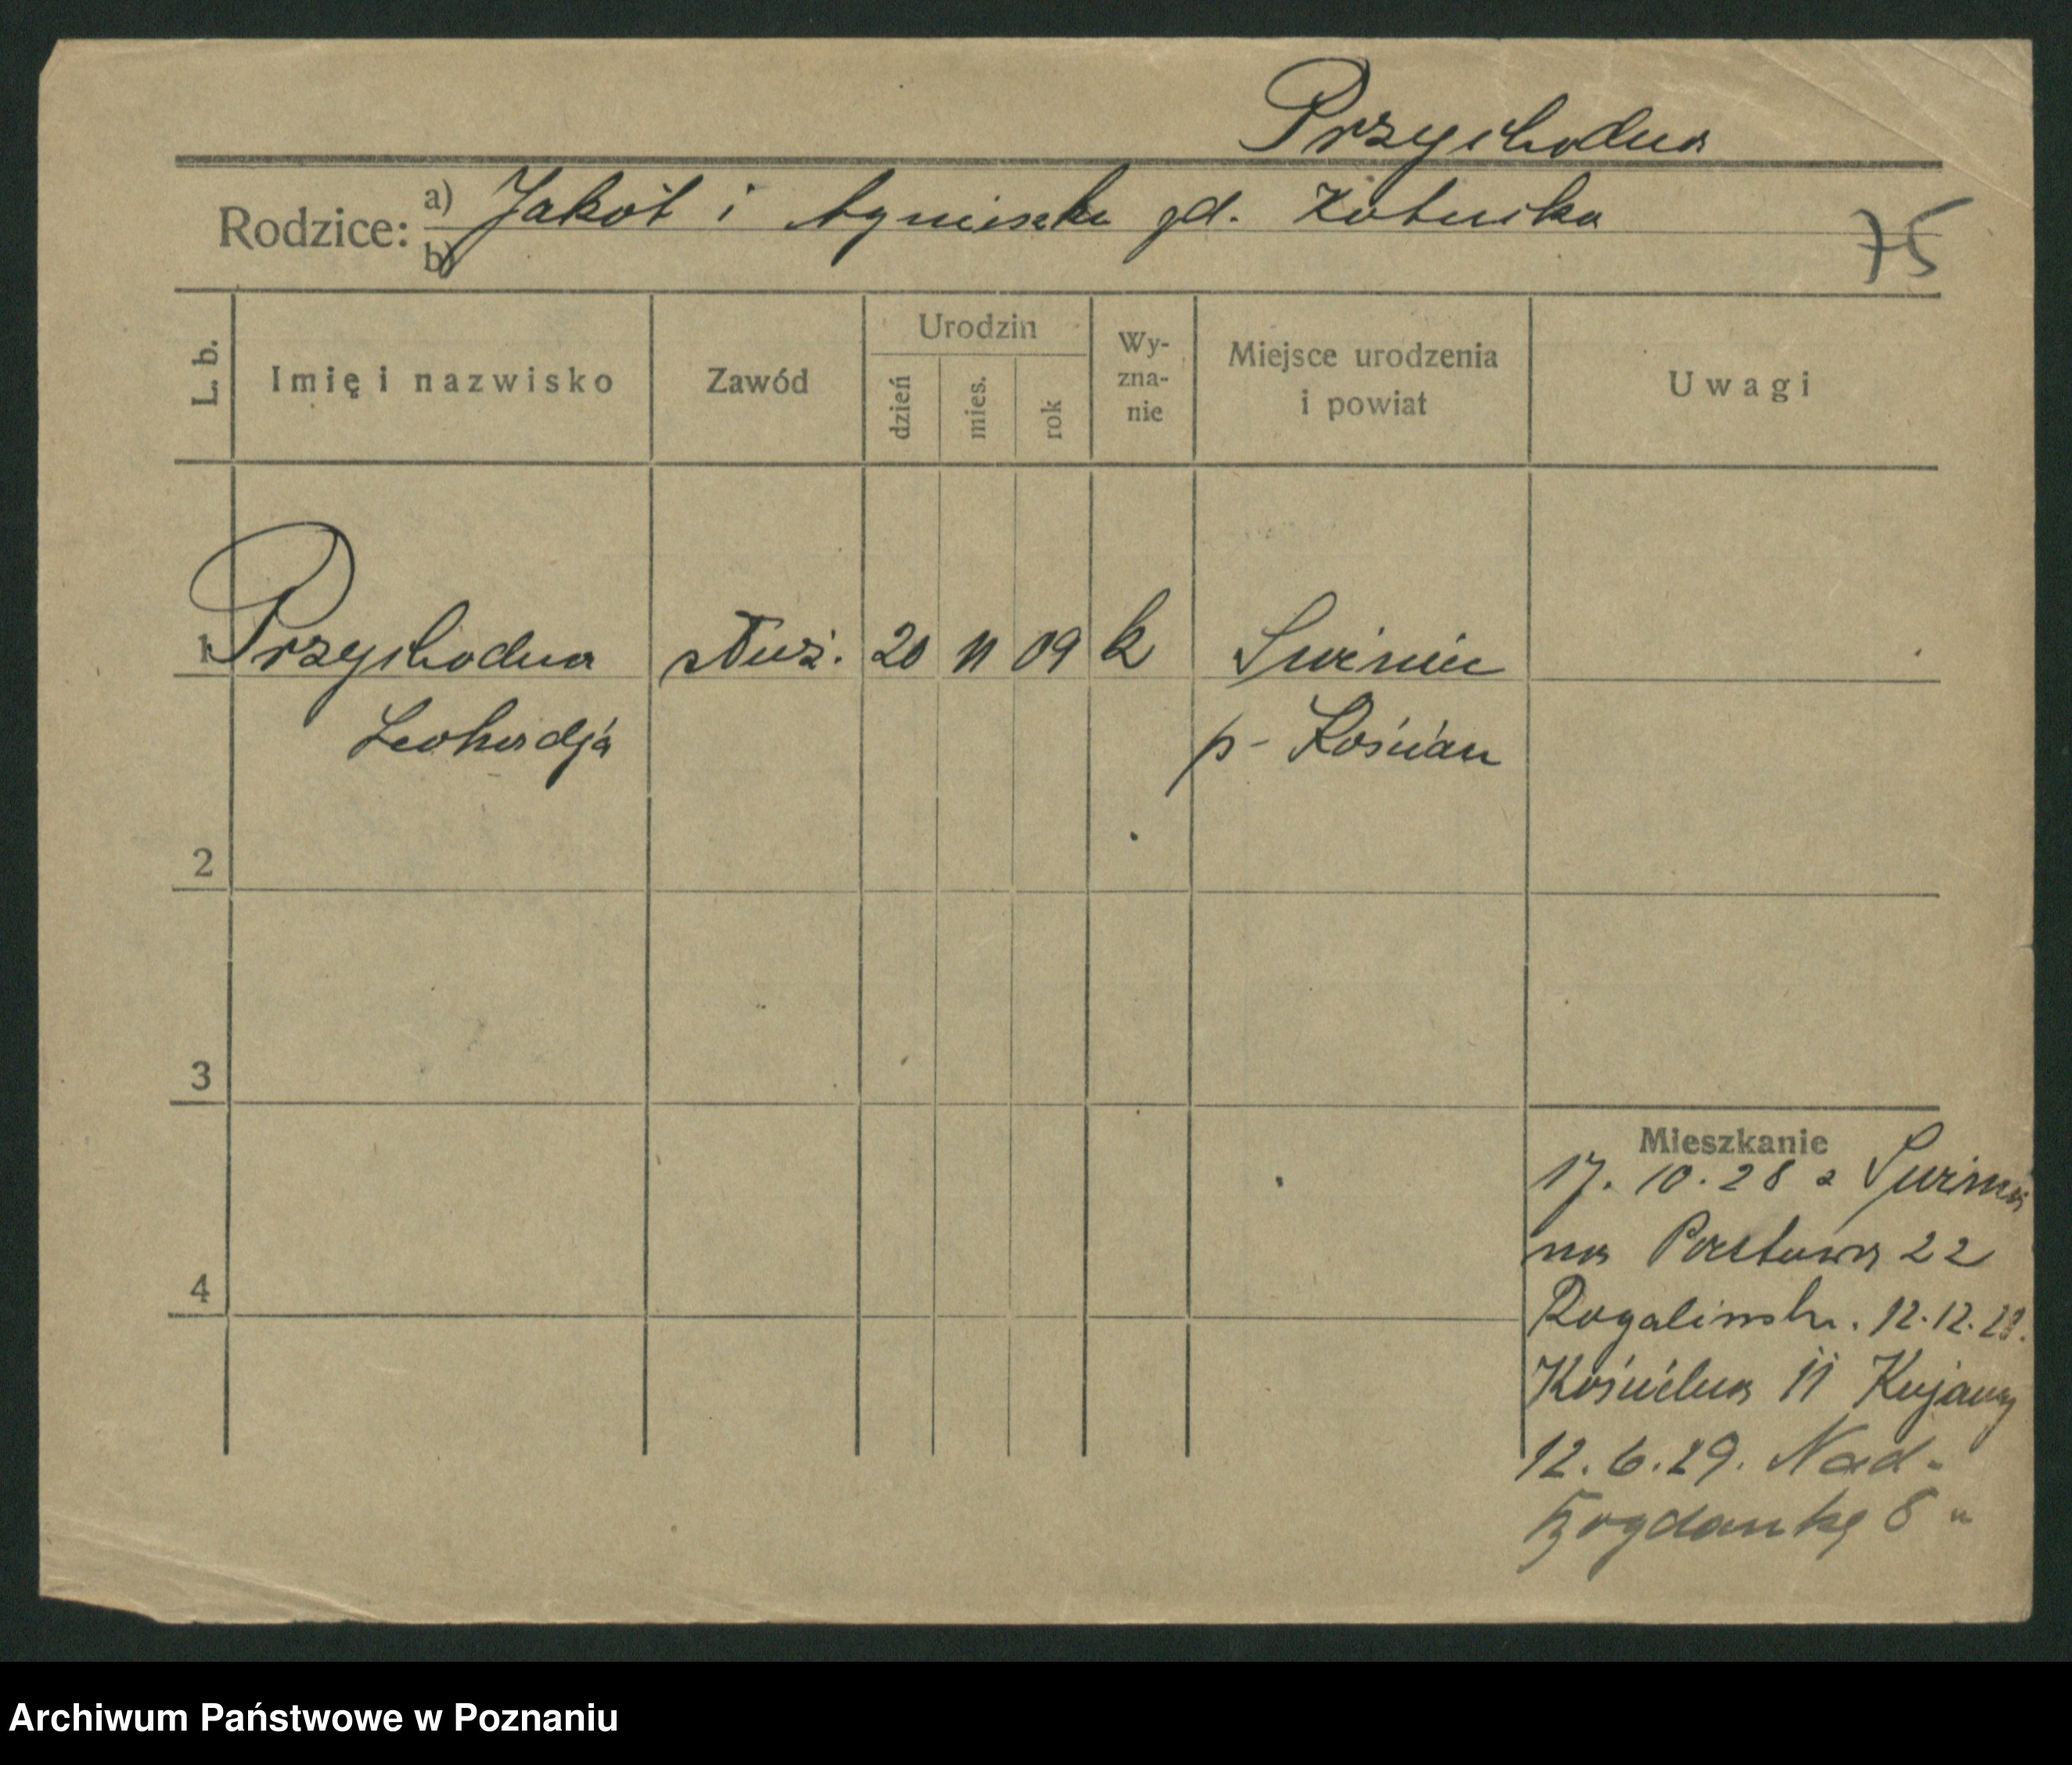 Przychodna
Rodzice: a) Jakób i Agnieszka zd. Kotecka
b)
75
L. b. Imię i nazwisko Zawód Urodzin dzień mies. rok Wyznanie Miejsce urodzenia i powiat Uwagi
1 Przychodna służ. 20 11 09 k
Leokadja p- Kościan
2
3
4
Mieszkanie
17. 10. 28 z
na Pocztowa 22
Rogalińsk. 12.12.28.
Kościelna 11 Kujawy
12.6.29. Nad-
Bogdanką 8
Archiwum Państwowe w Poznaniu